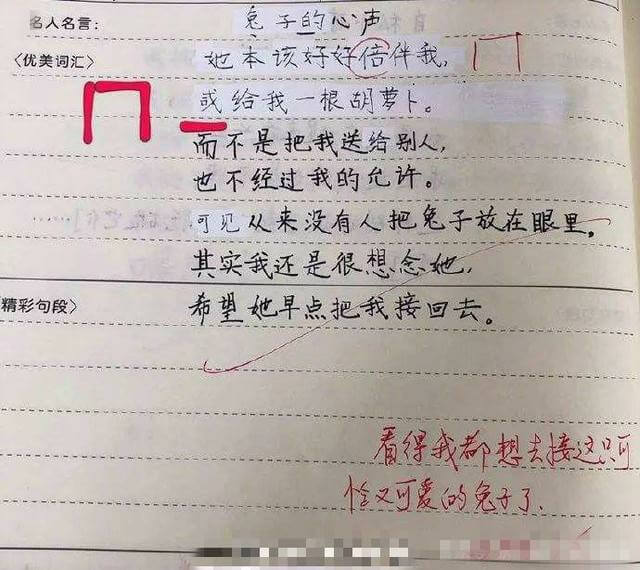 名人名言：
兔子的心声
〈优美词汇〉
她本该好好倍伴我，
或给我一根胡萝卜。
而不是把我送给别人，
也不经过我的允许。
可见从来没有人把兔子放在眼里。
其实我还是很想念她，
精彩句段〉
希望她早点把我接回去。
看得我都想去接这只可
怜又可爱的兔子了.